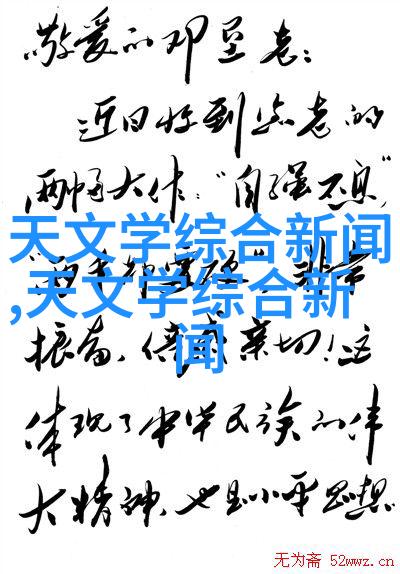 敬爱的邓垦老：
近日收到您老的
两幅大作："自强不息"
天文学综合新闻
,天文学综合新
闻
振奋、倍感亲切！这
体现了中华民族的伟
大精神，也是小平思想
无为斋 52wwz.cn